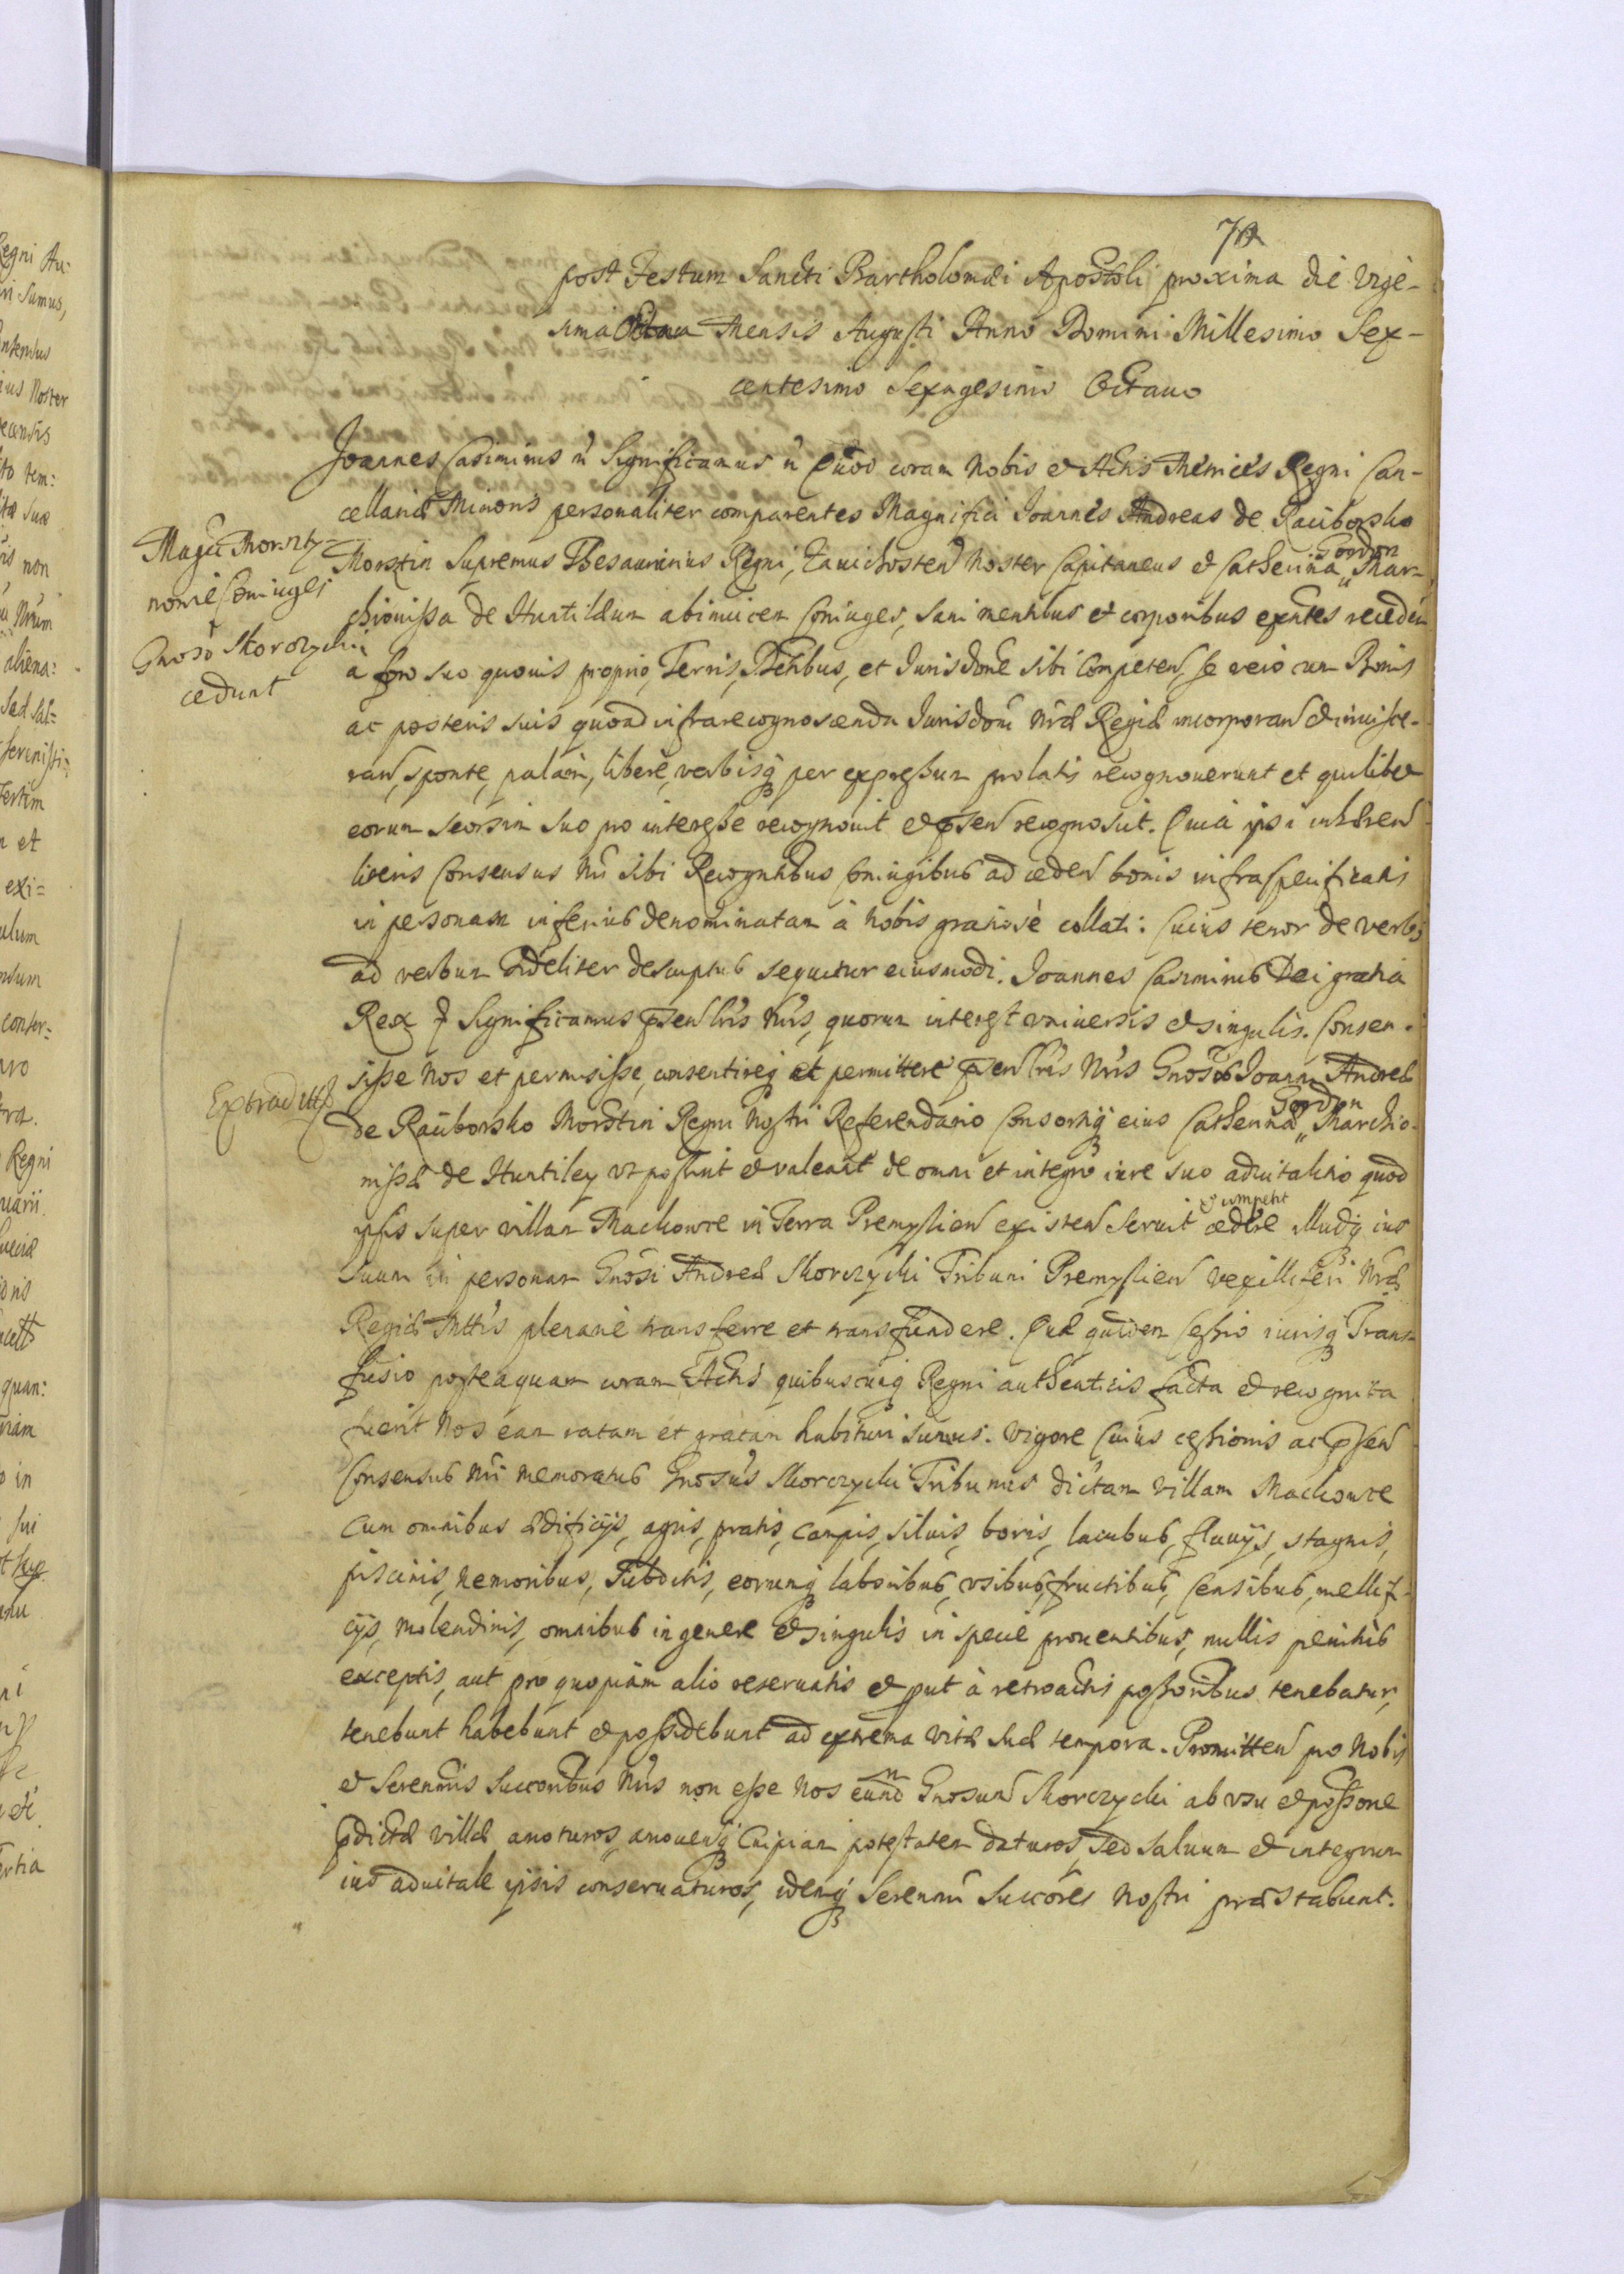 post Festum Sancti Bartholomæi Apostoli proxima die vige-
sima Octaua Mensis Augusti Anno Domini Millesimo Sex-
centesimo Sexagesimo Octauo
Joannes Casimirus Significamus Quod coram Nobis et Actis Metrices Regni Can-
cellariæ Minoris personaliter comparentes Magnifici Joannes Andreas de Raciborsko
Magci Morszty-
nowie Coniuges
Gnoso Skorczycki
cedunt
Morsztin Supremus Thesaurarius Regni, Zauichosten Noster Capitaneus et Catherina Gordon Mar-
chionissa de Huntileum abinuicem Coniuges, sani mentibus et corporibus exntes receden
a foro suo quouis proprio, Terris, Ptktibus, et Jurisdone sibi Competen, se vero cum Bonis
ac posteris suis quoad infrarecognoscenda Jurisdoni Nræ Regiæ incorporan et inuisce-
ran, sponte, palam, libere, verbisq per expressum prolatis recognouerunt et quilibet
eorum seorsim suo pro interesse recognouit et psen recognoscit. Quia ipsi inhæren
literis Consensus Nri sibi Recogntibus Coniugibus ad ceden bonis infraspecificatis
in personam inferius denominatam à Nobis gratiosè collati: Cuius tenor de verbo
ad verbum fideliter descriptus sequitur eiusmodi. Joannes Casimirus Dei gratia
Rex Significamus psen lris Nris, quorum interest vniuersis et singulis. Consen-
sisse Nos et permisisse, consentireq et permittere psen lris Nris Gnoso Joanni Andreæ
Extraditt
de Raciborsko Morstin Regni Nostri Referendario Consortiq eius Catherinæ Gordon Marchio-
nissæ de Huntiley vt possint et valeant de omni et integro iure suo aduitalitio quod
ipsis super villam Mackowce in Terra Premyslien existen seruit et competit cedere illudq ius
suum in personam Gnosi Andreæ Skorczycki Tribuni Premyslien Vexilliferi Nræ
Regiæ Mttis plenariè transferre et transfundere. Quæ quidem Cessio iurisq Trans-
fusio posteaquam coram Actis quibuscunq Regni authenticis facta et recognita
fuerit Nos eam ratam et gratam habituri sumus. Vigore Cuius cessionis ac psen
Consensus Nri memoratus Gnosus Skorczycki Tribunus dictam villam Mackowce
Cum omnibus ædificijs, agris, pratis, campis, siluis, boris, lacubus, fluuijs, stagnis,
piscinis, Nemoribus, Subditis, eorumq laboribus, vsibus, fructibus, Censibus, mellifi-
cijs, Molendinis, omnibus in genere et singulis in specie prouentibus, nullis penitùs
exceptis, aut pro quopiam alio reseruatis et put à retroactis possoribus tenebatur,
tenebunt habebunt et possidebunt ad extrema vitæ suæ tempora. Promitten pro Nobis
et Serenmis Succoribus Nris non esse Nos eund Gnosum Skorczycki ab vsu et possone
pdictæ villæ amoturos, amouendiq Cuipiam potestatem daturos, Sed saluum et integrum
ius aduitale ipsis conseruaturos, idemq Serenmi Succores Nostri præstabunt.